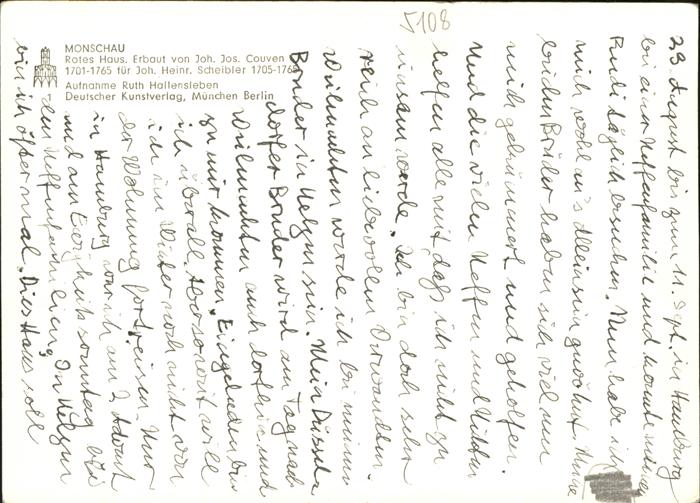 5108
MONSCHAU
Rotes Haus. Erbaut von Joh. Jos. Couven
1701-1765 für Joh. Heinr. Scheibler 1705-1765
Aufnahme Ruth Hallensleben
Deutscher Kunstverlag, München Berlin
23. August bis zum 11. Sept. in Hamburg
bei einer Neffenfamilie und konnte meinen
Rudi täglich besuchen. Nun habe ich
mich wohl an's Alleinsein gewöhnt. Meine
beiden Brüder haben sich viel um
mich gekümmert und geholfen.
Und die vielen Neffen und Nichten
helfen alle mit, daß ich nicht zu
einsam werde. Ich bin doch sehr
reich an liebevollen Verwandten.
Weihnachten werde ich bei meinem
Bruder in Uelzen sein. Mein Düssel-
dorfer Bruder wird am Tag nach
Weihnachten auch dorthin und
zu mir kommen. Eingeladen bin
ich überall. Aber so weit will
ich im Winter noch nicht von
der Wohnung fortreisen. Nur
in Hamburg war ich am 2. Advent
und am Ewigkeitssonntag bei
den Neffenfamilien. In Uelzen
bin ich öfter mal. Dies Haus soll